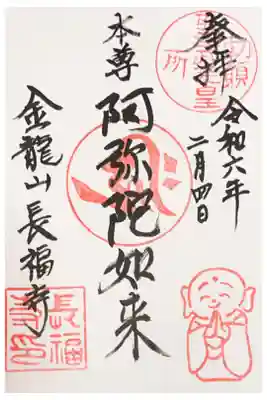 奉拝
令和六年
二月四日
本尊
阿弥陀如来
金龍山 長福寺
長福
寺印